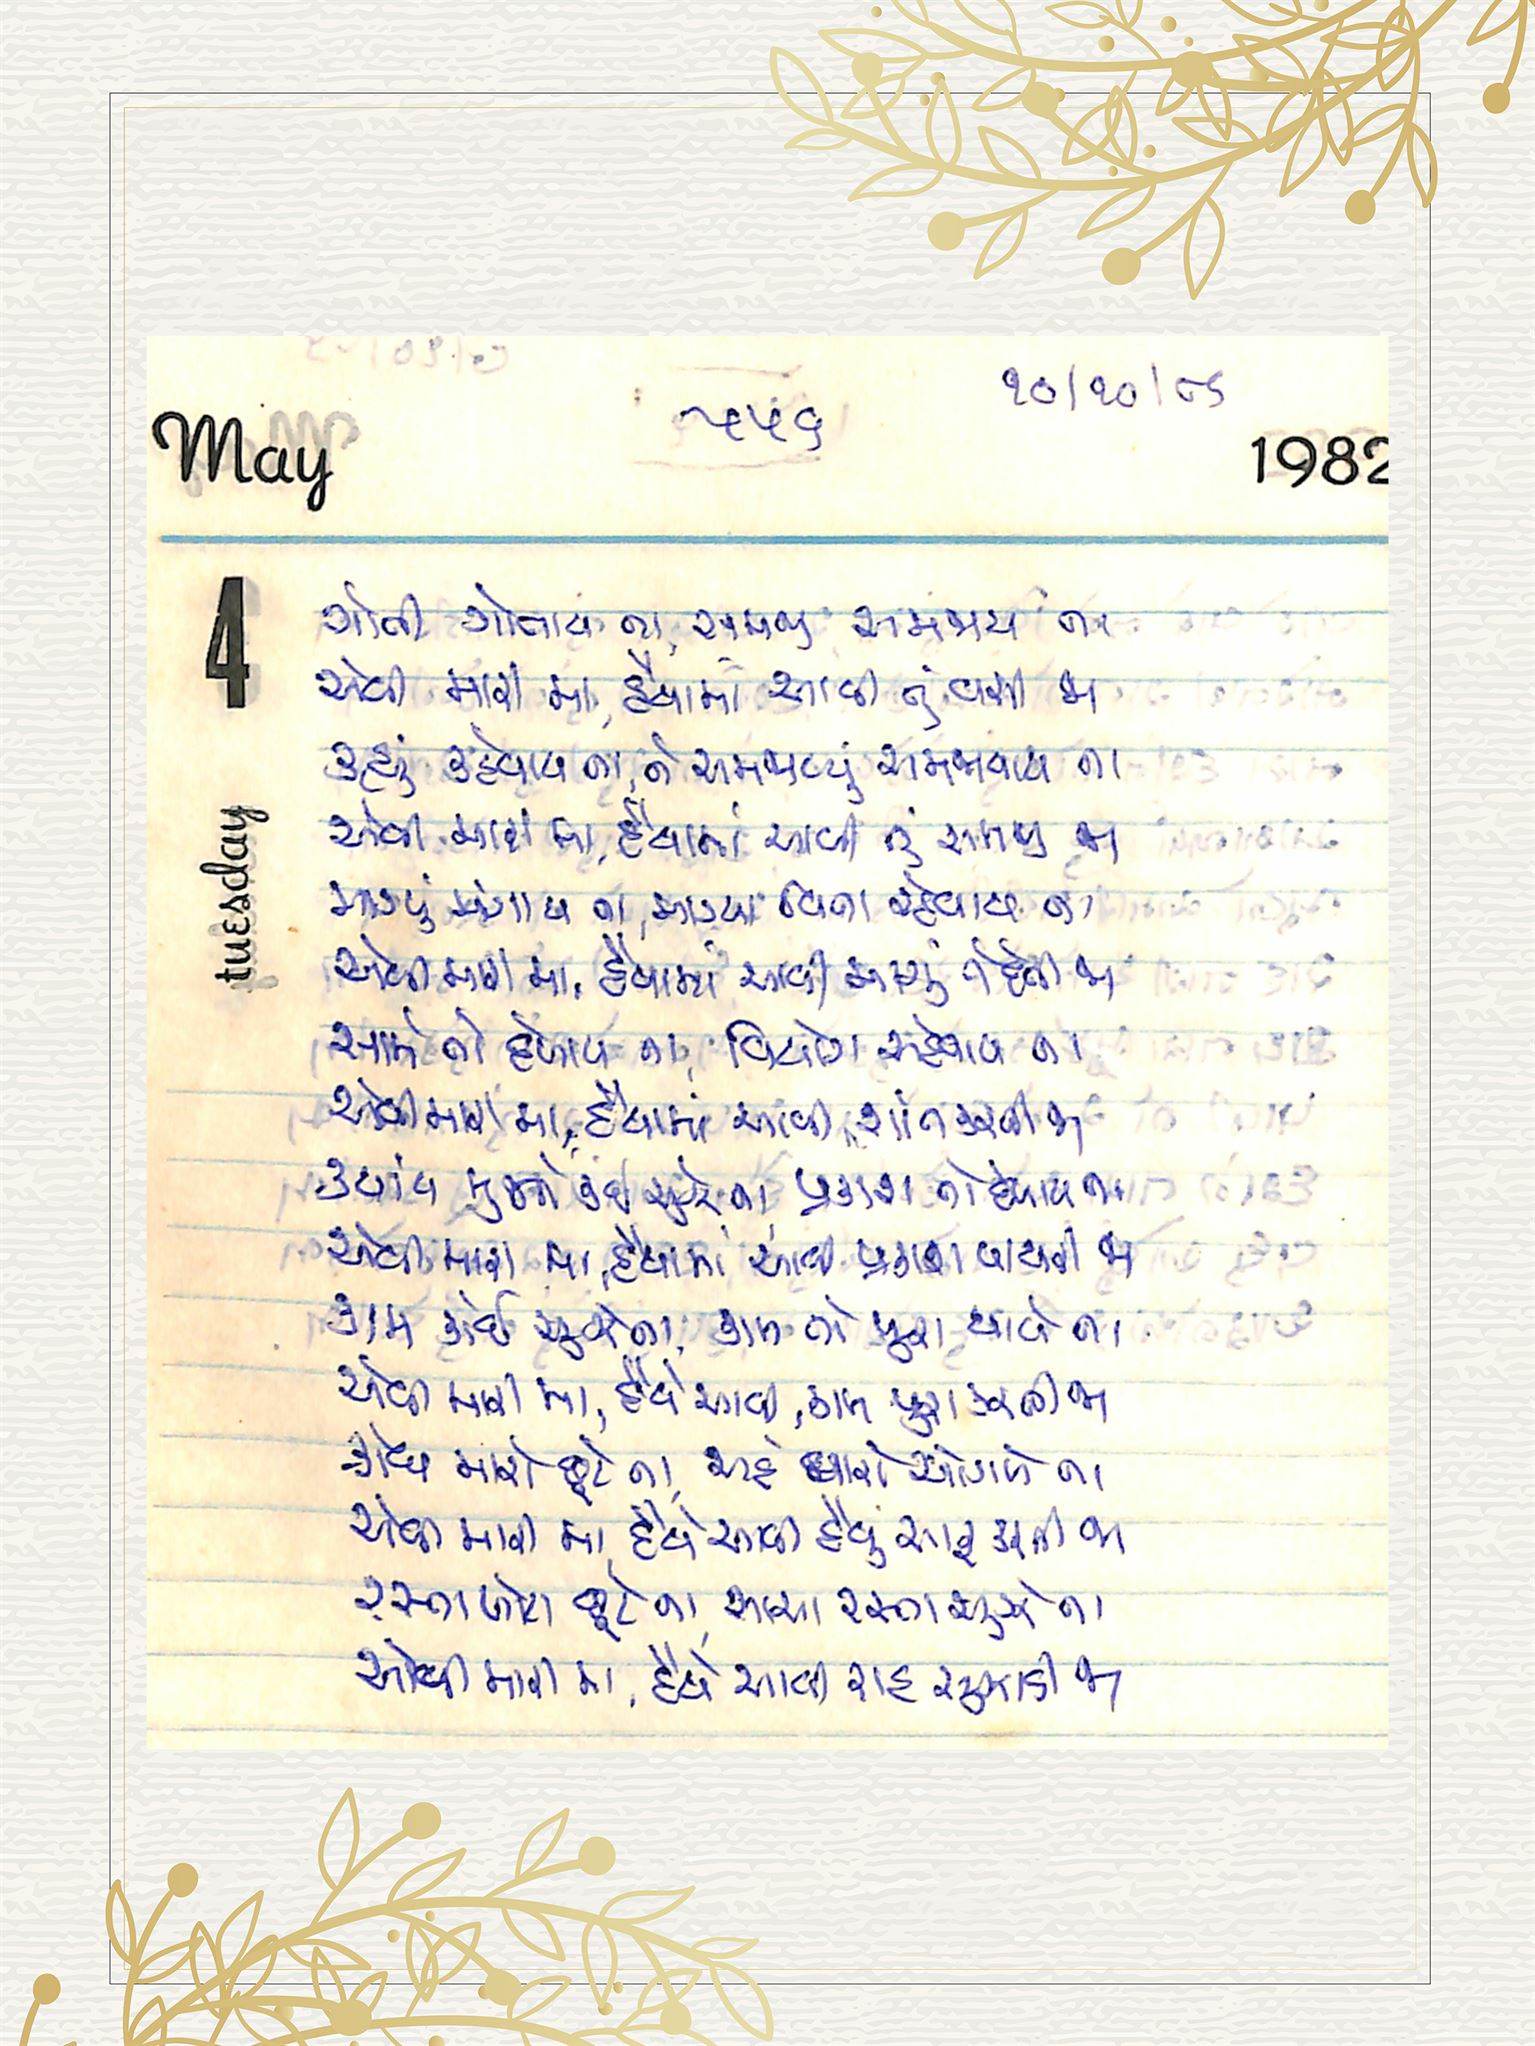 ૧૦/૧૦/૮૬
૫૫૧
May
1982
4
tuesday
ગોતી ગોતાય ના, સમજી સમજાય ના
એવી મારી મા, હૈયામાં આવી તું વસી જા
કહ્યું કહેવાય ના, ને સમજાવ્યું સમજાવાય ના
એવી મારી મા, હૈયામાં આવી તું સમજી જા
માગ્યું મંગાય ના, માગ્યા વિના રહેવાય ના
એવી મારી મા, હૈયામાં આવી મને તું દેતી જા
સામે તો દેખાય ના, વિયોગ સહેવાય ના
એવી મારી મા, હૈયામાં આવી શાંત કરતી જા
ક્યાંય મુજને કંઈ સૂઝે ના, પ્રકાશ તો દેખાય ના
એવી મારી મા, હૈયામાં આવી પ્રકાશ પાથરી જા
કામ કોઈ સુઝે ના, કામ તો પુરા થાયે ના
એવી મારી મા, હૈયે આવી, કામ પુરા કરતી જા
ક્રોધ મારો છૂટે ના, અહં મારો ઓગળે ના
એવી મારી મા, હૈયે આવી હૈયું સાફ કરતી જા
રસ્તા ખોટા છૂટે ના, સાચા રસ્તા સુઝે ના
એવી મારી મા, હૈયે આવી રાહ સુઝાડી જા